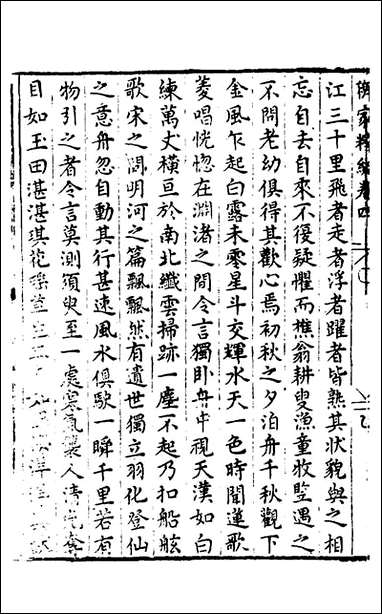 江三十里飛者走者浮者躍者皆熟其狀貌與之相
忘自去自來不復疑懼而樵翁耕叟漁童牧豎遇之
不問老幼俱得其歡心焉初秋之夕泊舟千秋觀下
金風乍起白露未零星斗交輝水天一色時聞蓮歌
菱唱恍惚在淵渚之間令言獨卧舟中視天漢如白
練萬丈橫亘於南北纖雲掃跡一塵不起乃扣船舷
歌宋之問明河之篇飄飄然有遺世獨立羽化登仙
之意舟忽自動其行甚速風水俱駛一瞬千里若有
物引之者令言莫測須臾至一處寒氣襲人清光奪
目如玉田湛湛琪花瑤草生